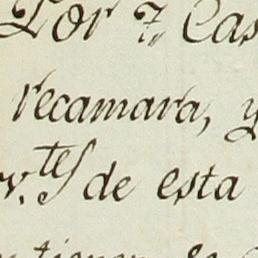 Por 7. Cas
recamara, y
v.tes de esta